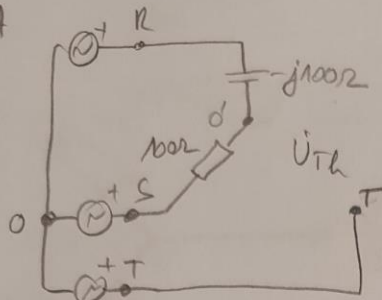 + R
-j100Ω
0'
100Ω
U̇Th
T
+ S
0
+ T